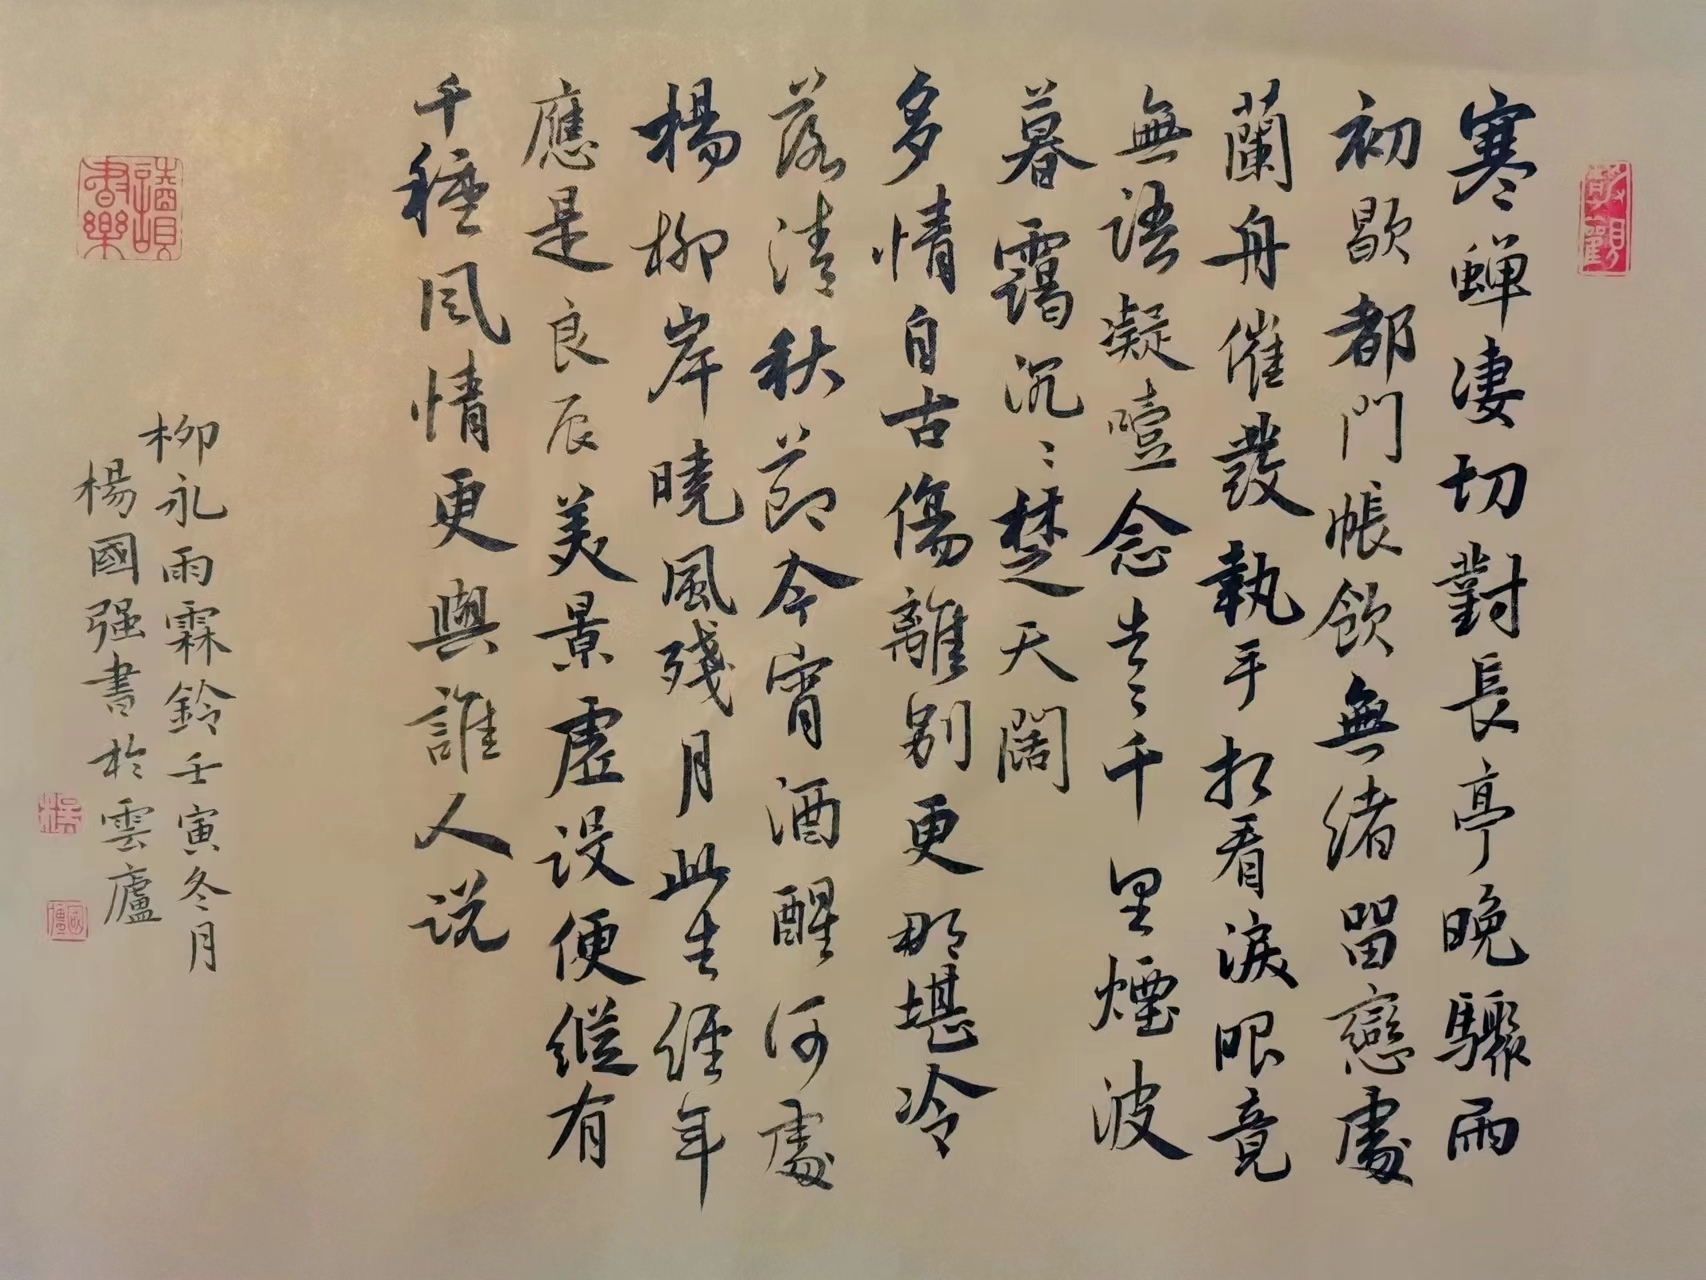 寒蟬凄切對長亭晚驟雨
初歇都門帳飲無緒留戀處
蘭舟催發執手相看淚眼竟
無語凝噎念去々千里煙波
暮靄沉々楚天闊
多情自古傷離别更那堪冷
落清秋節今宵酒醒何處
楊柳岸曉風殘月此去經年
應是良辰美景虛設便縱有
千種風情更與誰人説
柳永雨霖鈴壬寅冬月
楊國强書於雲廬